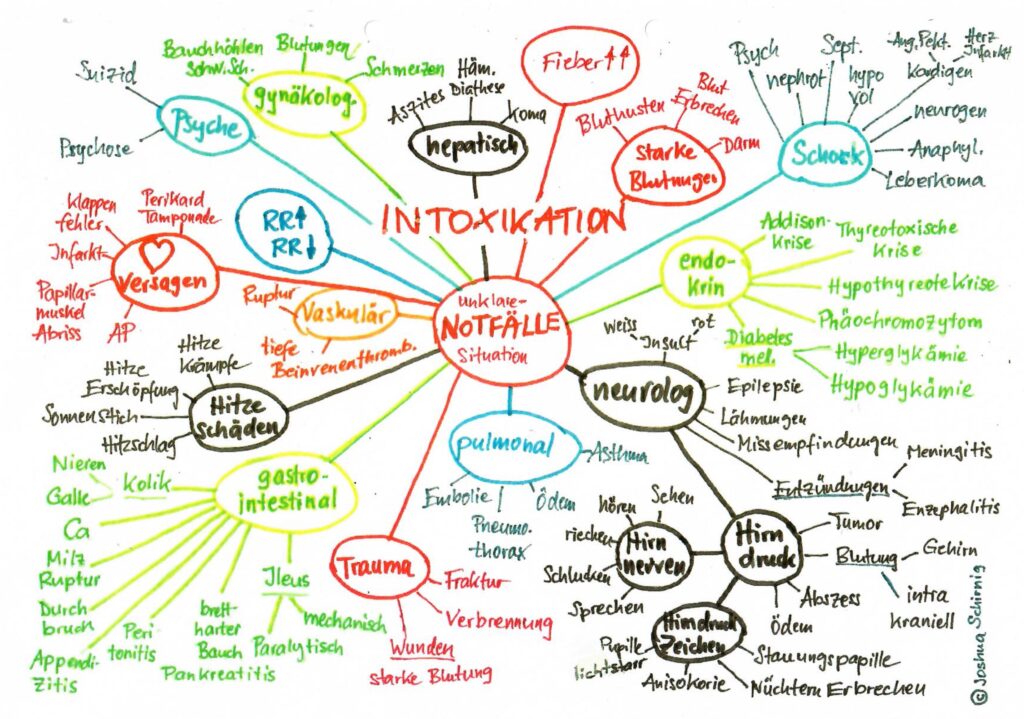 Suizid
Psychose
Psyche
Bauchhöhlen
Schw.Sch.
Blutungen
Schmerzen
gynäkolog.
Aszites
Häm.
Diathese
Koma
hepatisch
Fieber↑↑
Bluthusten
Blut
Erbrechen
Darm
starke
Blutnuge.
Psych
nephrot
Sept.
hypo
vol
Ang. Pekt.
Herz
Infarkt
Kardigen
neurogen
Anaphyl.
Leberkoma
Schock
INTOXIKATION
RR↑
RR↓
Klappen
fehler
Perikard
Tamponade
Infarkt
Papillar-
muskel
Abriss
AP
Versagen
Ruptur
Vaskulär
tiefe
Beinvenenthromb.
unklare
NOTFÄLLE
Situation
endo-
krin
Addison-
Krise
Thyreotoxische
Krise
Hypothyreote Krise
Phäochromozytom
Diabetes
mel.
Hyperglykämie
Hypoglykämie
Hitze
Krämpfe
Hitze
Erschöpfung
Sonnenstich
Hitzschlag
Hitze
schäden
weiss
rot
Insult
neurolog
Epilepsie
Lähmungen
Missempfindungen
Entzündungen
Meningitis
Enzephalitis
pulmonal
Asthma
Embolie
Ödem
Pneumo.
thorax
gastro-
intestinal
Nieren
Galle
Kolik
Ca
Milz
Ruptur
Durch
bruch
Appendi-
zitis
Peri
tonitis
brett-
harter
Bauch
Pankreatitis
Ileus
Paralytisch
mechanisch
Trauma
Fraktur
Verbrennung
Wunden
starke Blutung
Hirn
nerven
hören
Sehen
riechen
Schlucken
Sprechen
Hirn
druck
Tumor
Blutung
Gehirn
intra
kraniell
Abszess
Ödem
Hirndruck
Zeichen
Pupille
lichtstarr
Anisokorie
Stauungspapille
Nüchtern Erbrechen
© Joshua Schirnig